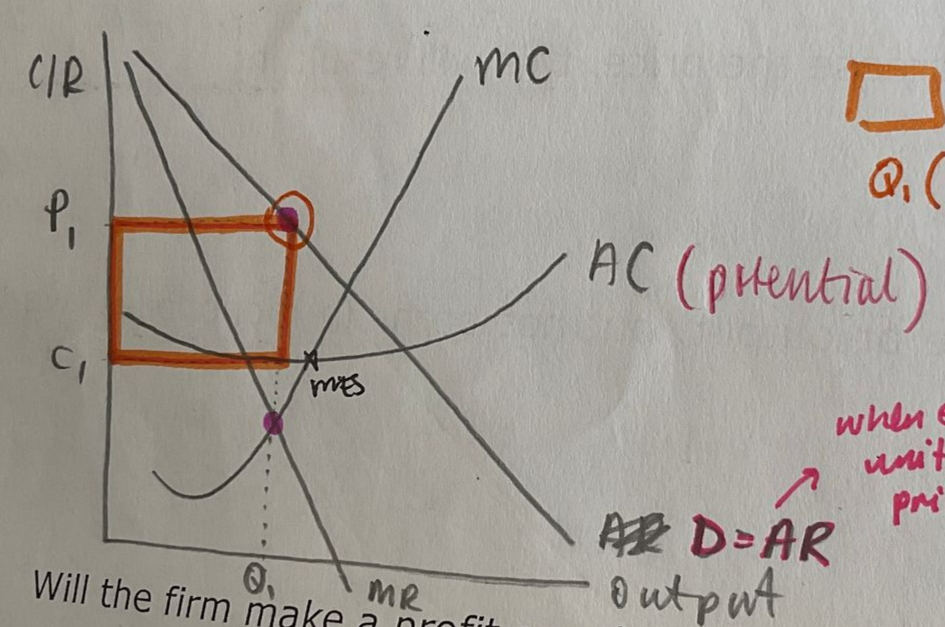 C/R
MC
P₁
Q₁(
AC (potential)
C₁
MES
when
unit
D=AR
Q₁
MR
Output
Will the firm make a profit